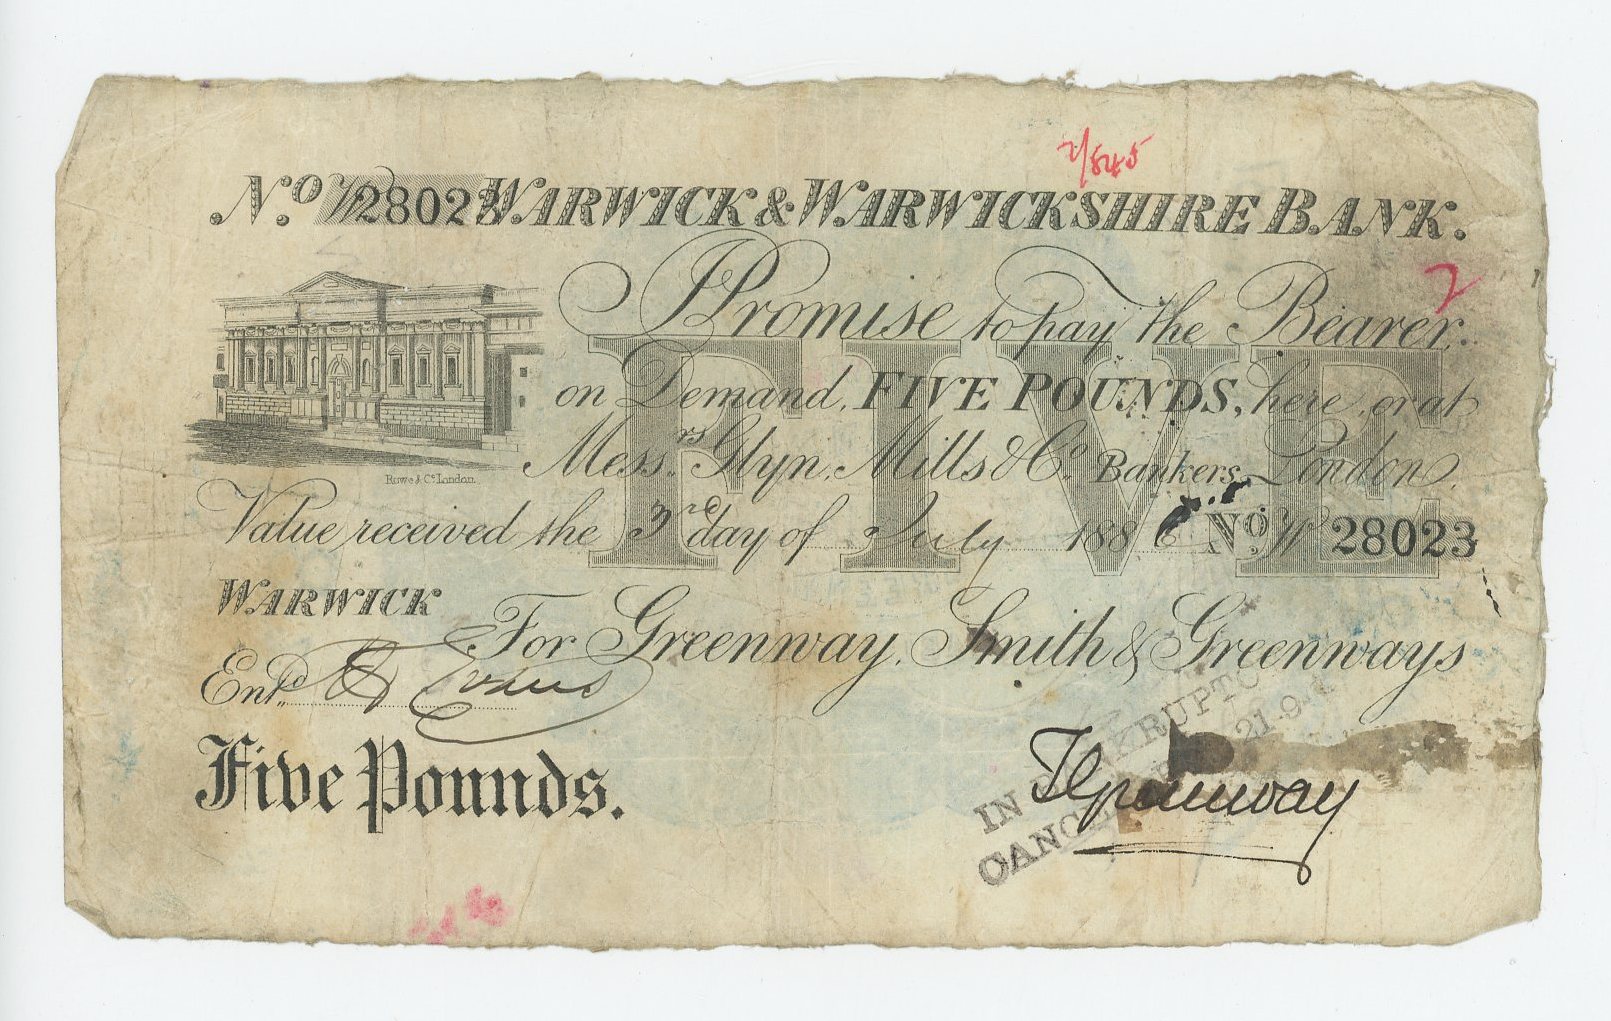 2/845
No W 28023 WARWICK & WARWICKSHIRE BANK.
2
I Promise to pay the Bearer
on Demand, FIVE POUNDS, here, or at
Messrs Glyn, Mills & Co Bankers, London,
FIVE
Rowe & Co London
Value received the 3rd day of July 1886 No W 28023
WARWICK
For Greenway, Smith & Greenways
Entd Evans
IN
21.9.
Five Pounds.
Greenway